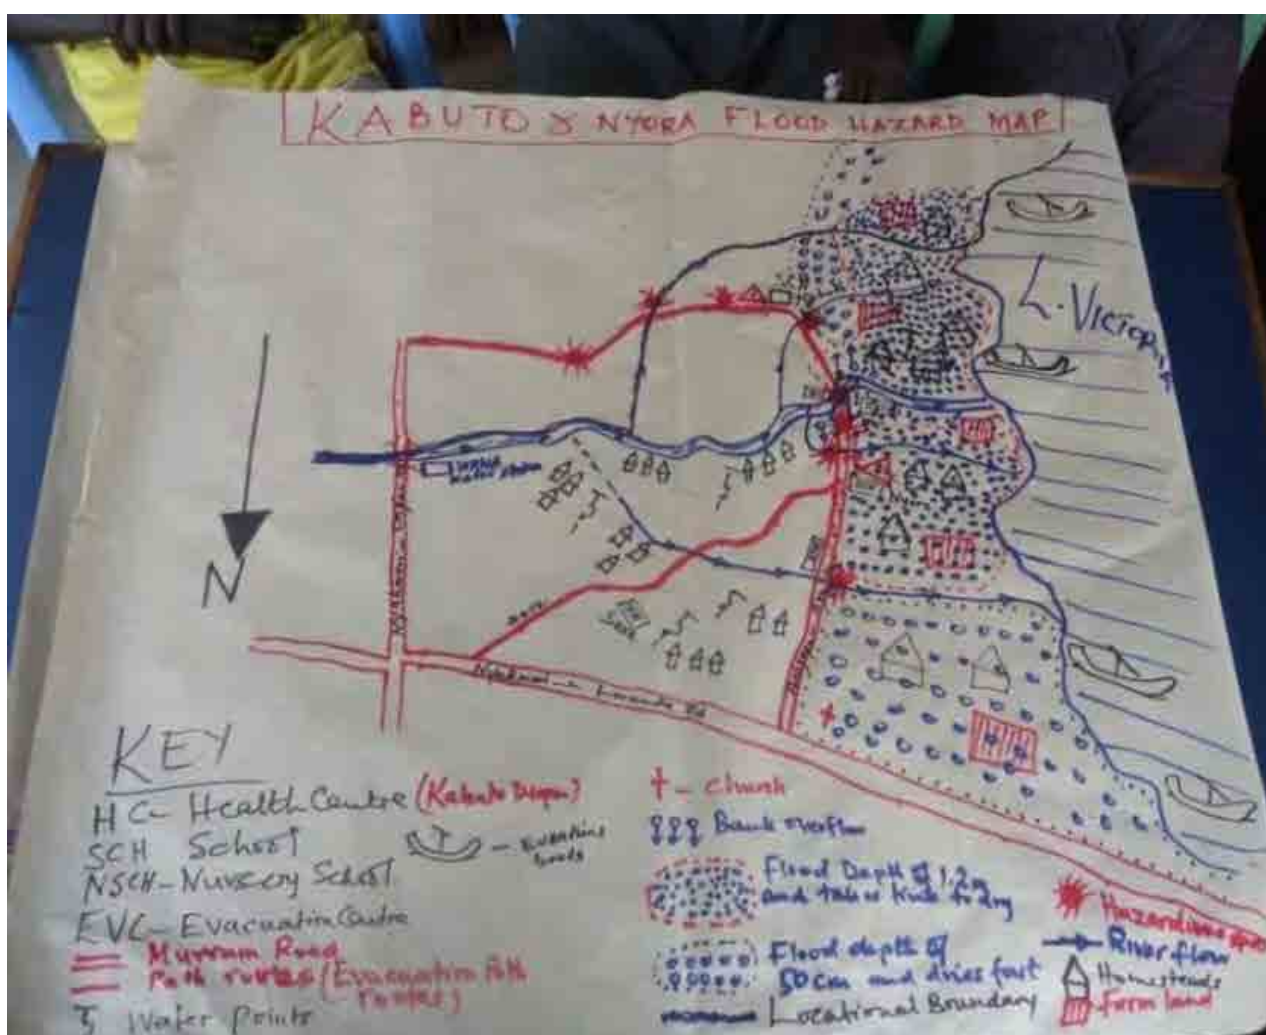 KABUTO & NYORA FLOOD HAZARD MAP
L. VICTORIA
N
SCH
KEY
HC - Health Centre (Kabuto Dispen)
SCH School
NSCH - Nursery School
EVC - Evacuation Centre
Murram Road
Path routes (Evacuation Path routes)
Water points
boats
† - church
Bank overflow
Flood Depth of 1.2m
and takes time to dry
Flood depth of
50cm and dries fast
Locational Boundary
Hazardous
River flow
Homesteads
Farm land